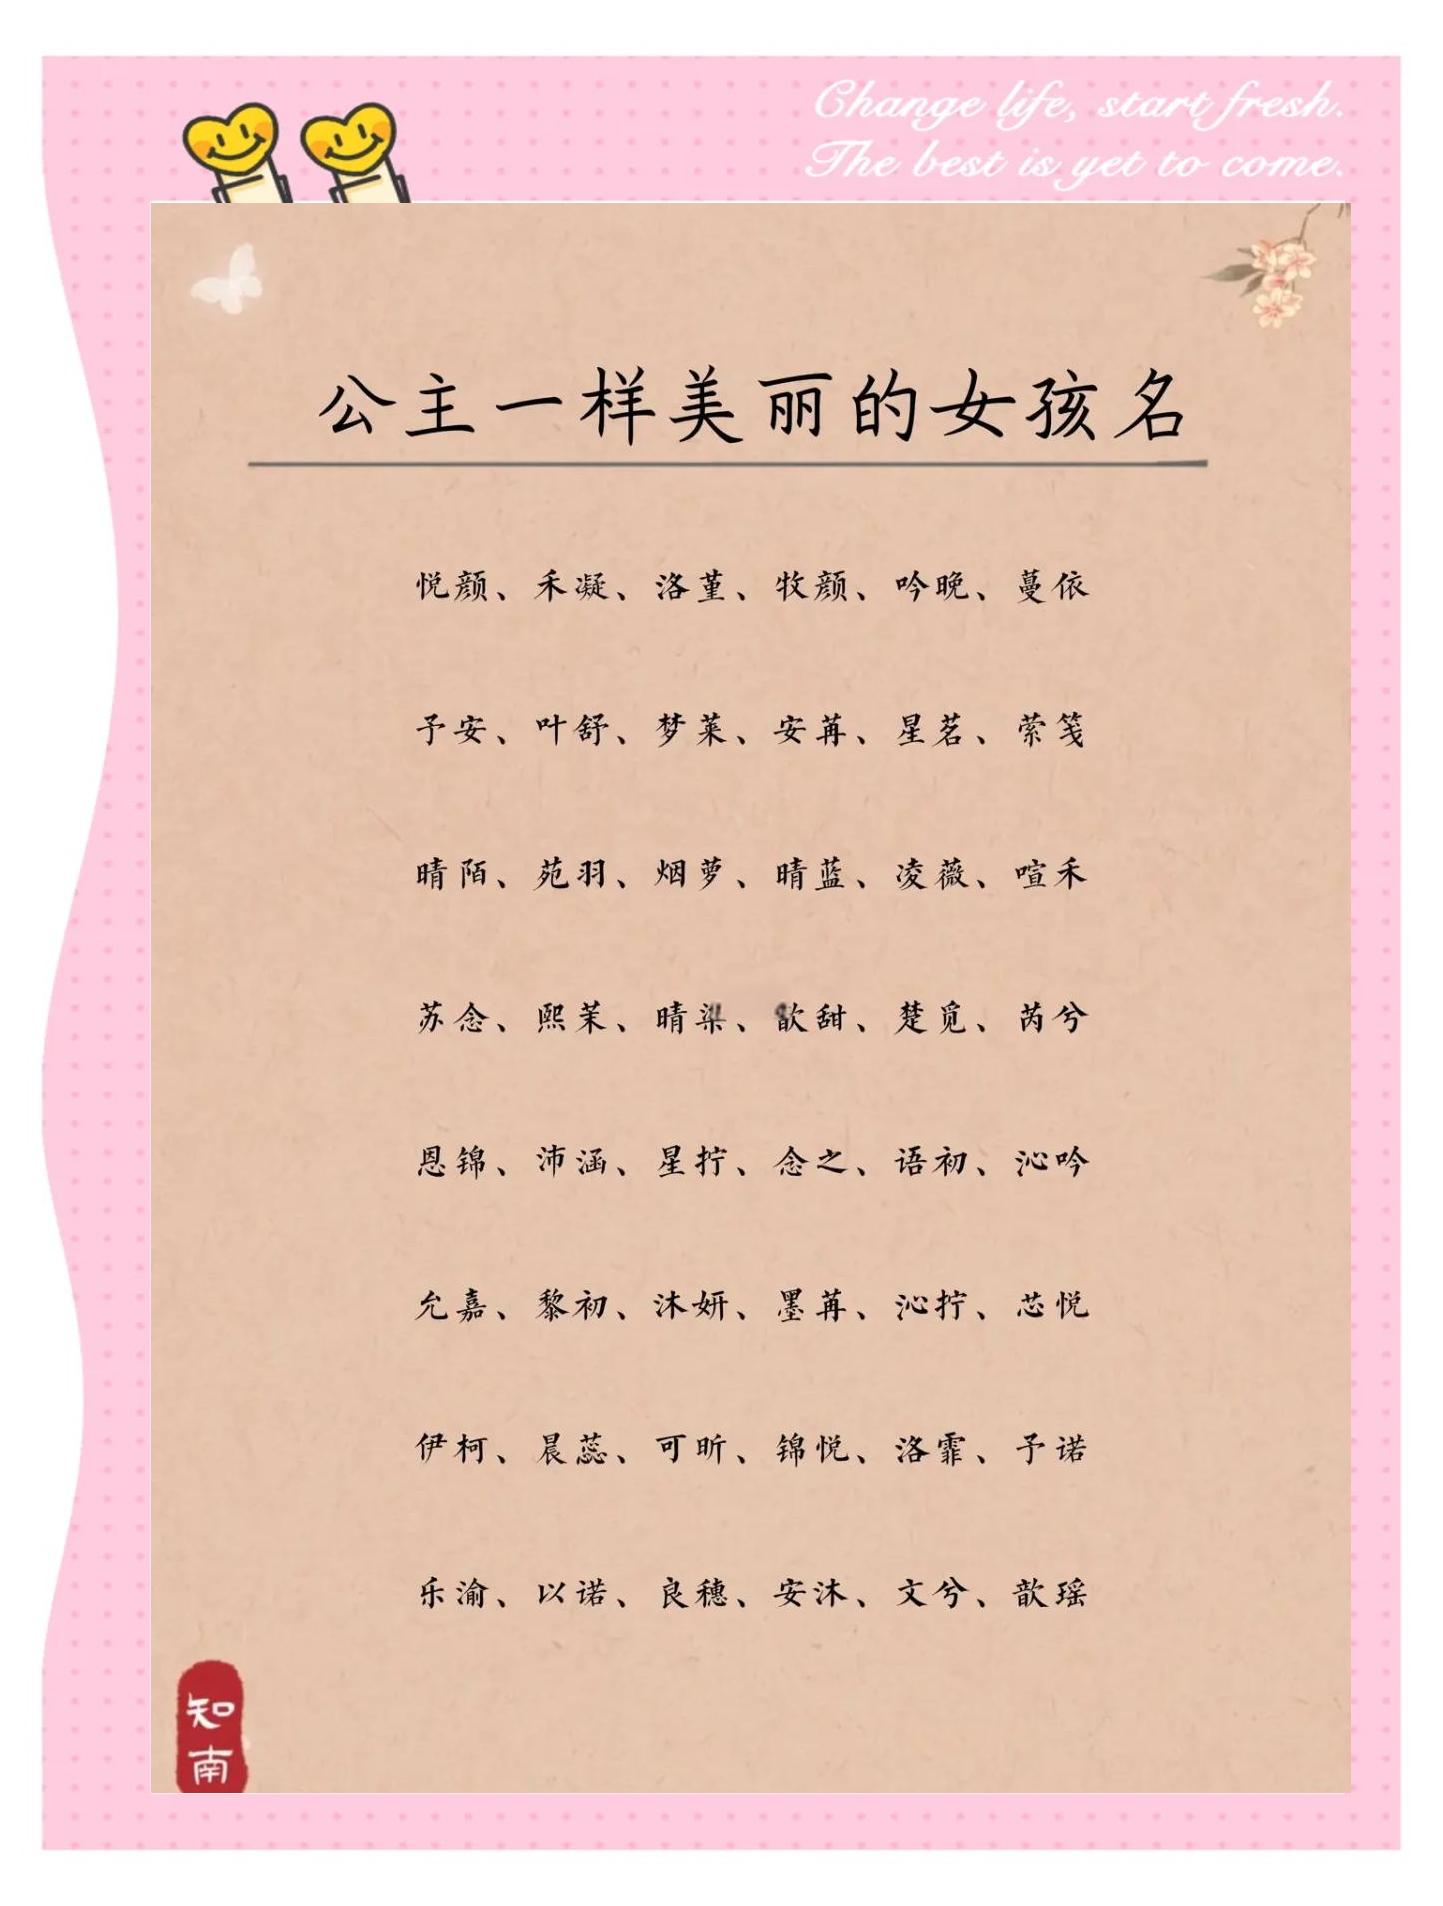 Change life, start fresh.
The best is yet to come.
公主一样美丽的女孩名
悦颜、禾凝、洛堇、牧颜、吟晚、蔓依
予安、叶舒、梦莱、安苒、星茗、萦笺
晴陌、苑羽、烟萝、晴蓝、凌薇、喧禾
苏念、熙茉、晴柒、歆甜、楚觅、芮兮
恩锦、沛涵、星拧、念之、语初、沁吟
允嘉、黎初、沐妍、墨苒、沁拧、芯悦
伊柯、晨蕊、可昕、锦悦、洛霏、予诺
乐渝、以诺、良穗、安沐、文兮、歆瑶
知
南